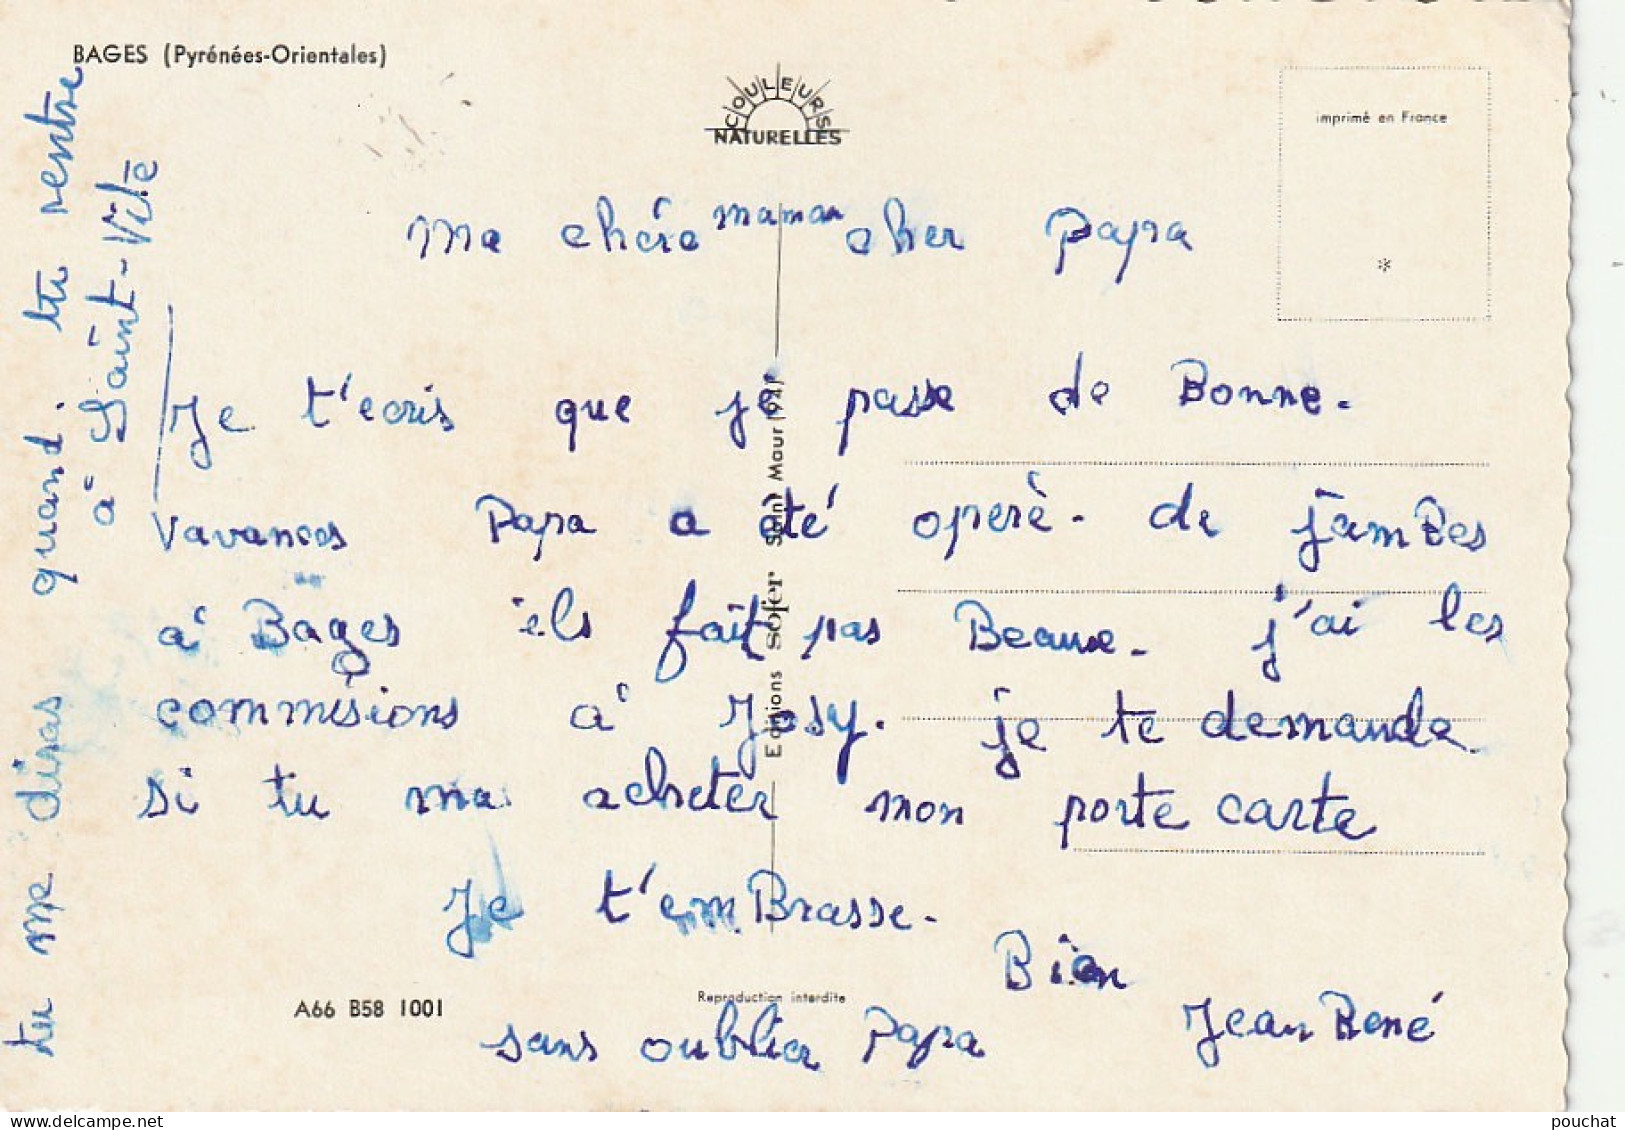 BAGES (Pyrénées-Orientales)
COULEURS
NATURELLES
imprimé en France
*
Ma chére maman cher papa
Je t'ecris que je passe de Bonne.
Vavances Papa a été operè. de jamBes
a' Bages ils fait pas Beaux. j'ai les
commisions a' Josy. je te demande
si tu ma acheter mon porte carte
Je t'em Brasse.
Bien
sans oublier Papa Jean René
tu me diras quand. tu rentre
a' Saint-Vite
Editions Sofer Saint Maur (94)
A66 B58 1001
Reproduction interdite
pouchat